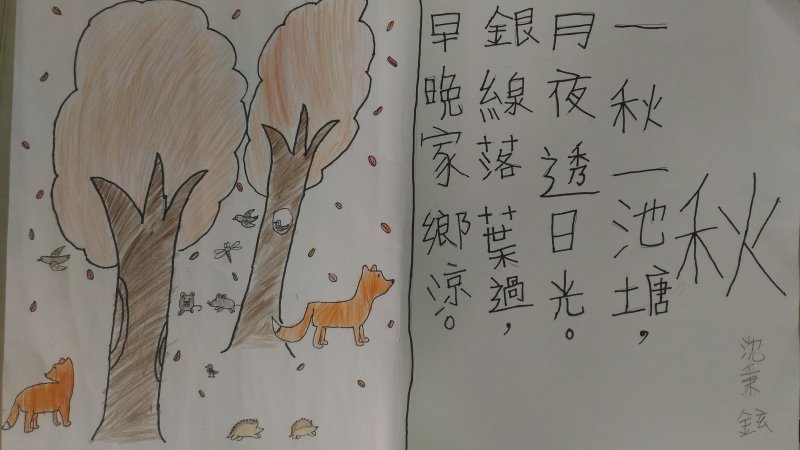 秋
一秋一池塘，
月夜透日光。
銀線落葉過，
早晚家鄉涼。
沈秉鉉